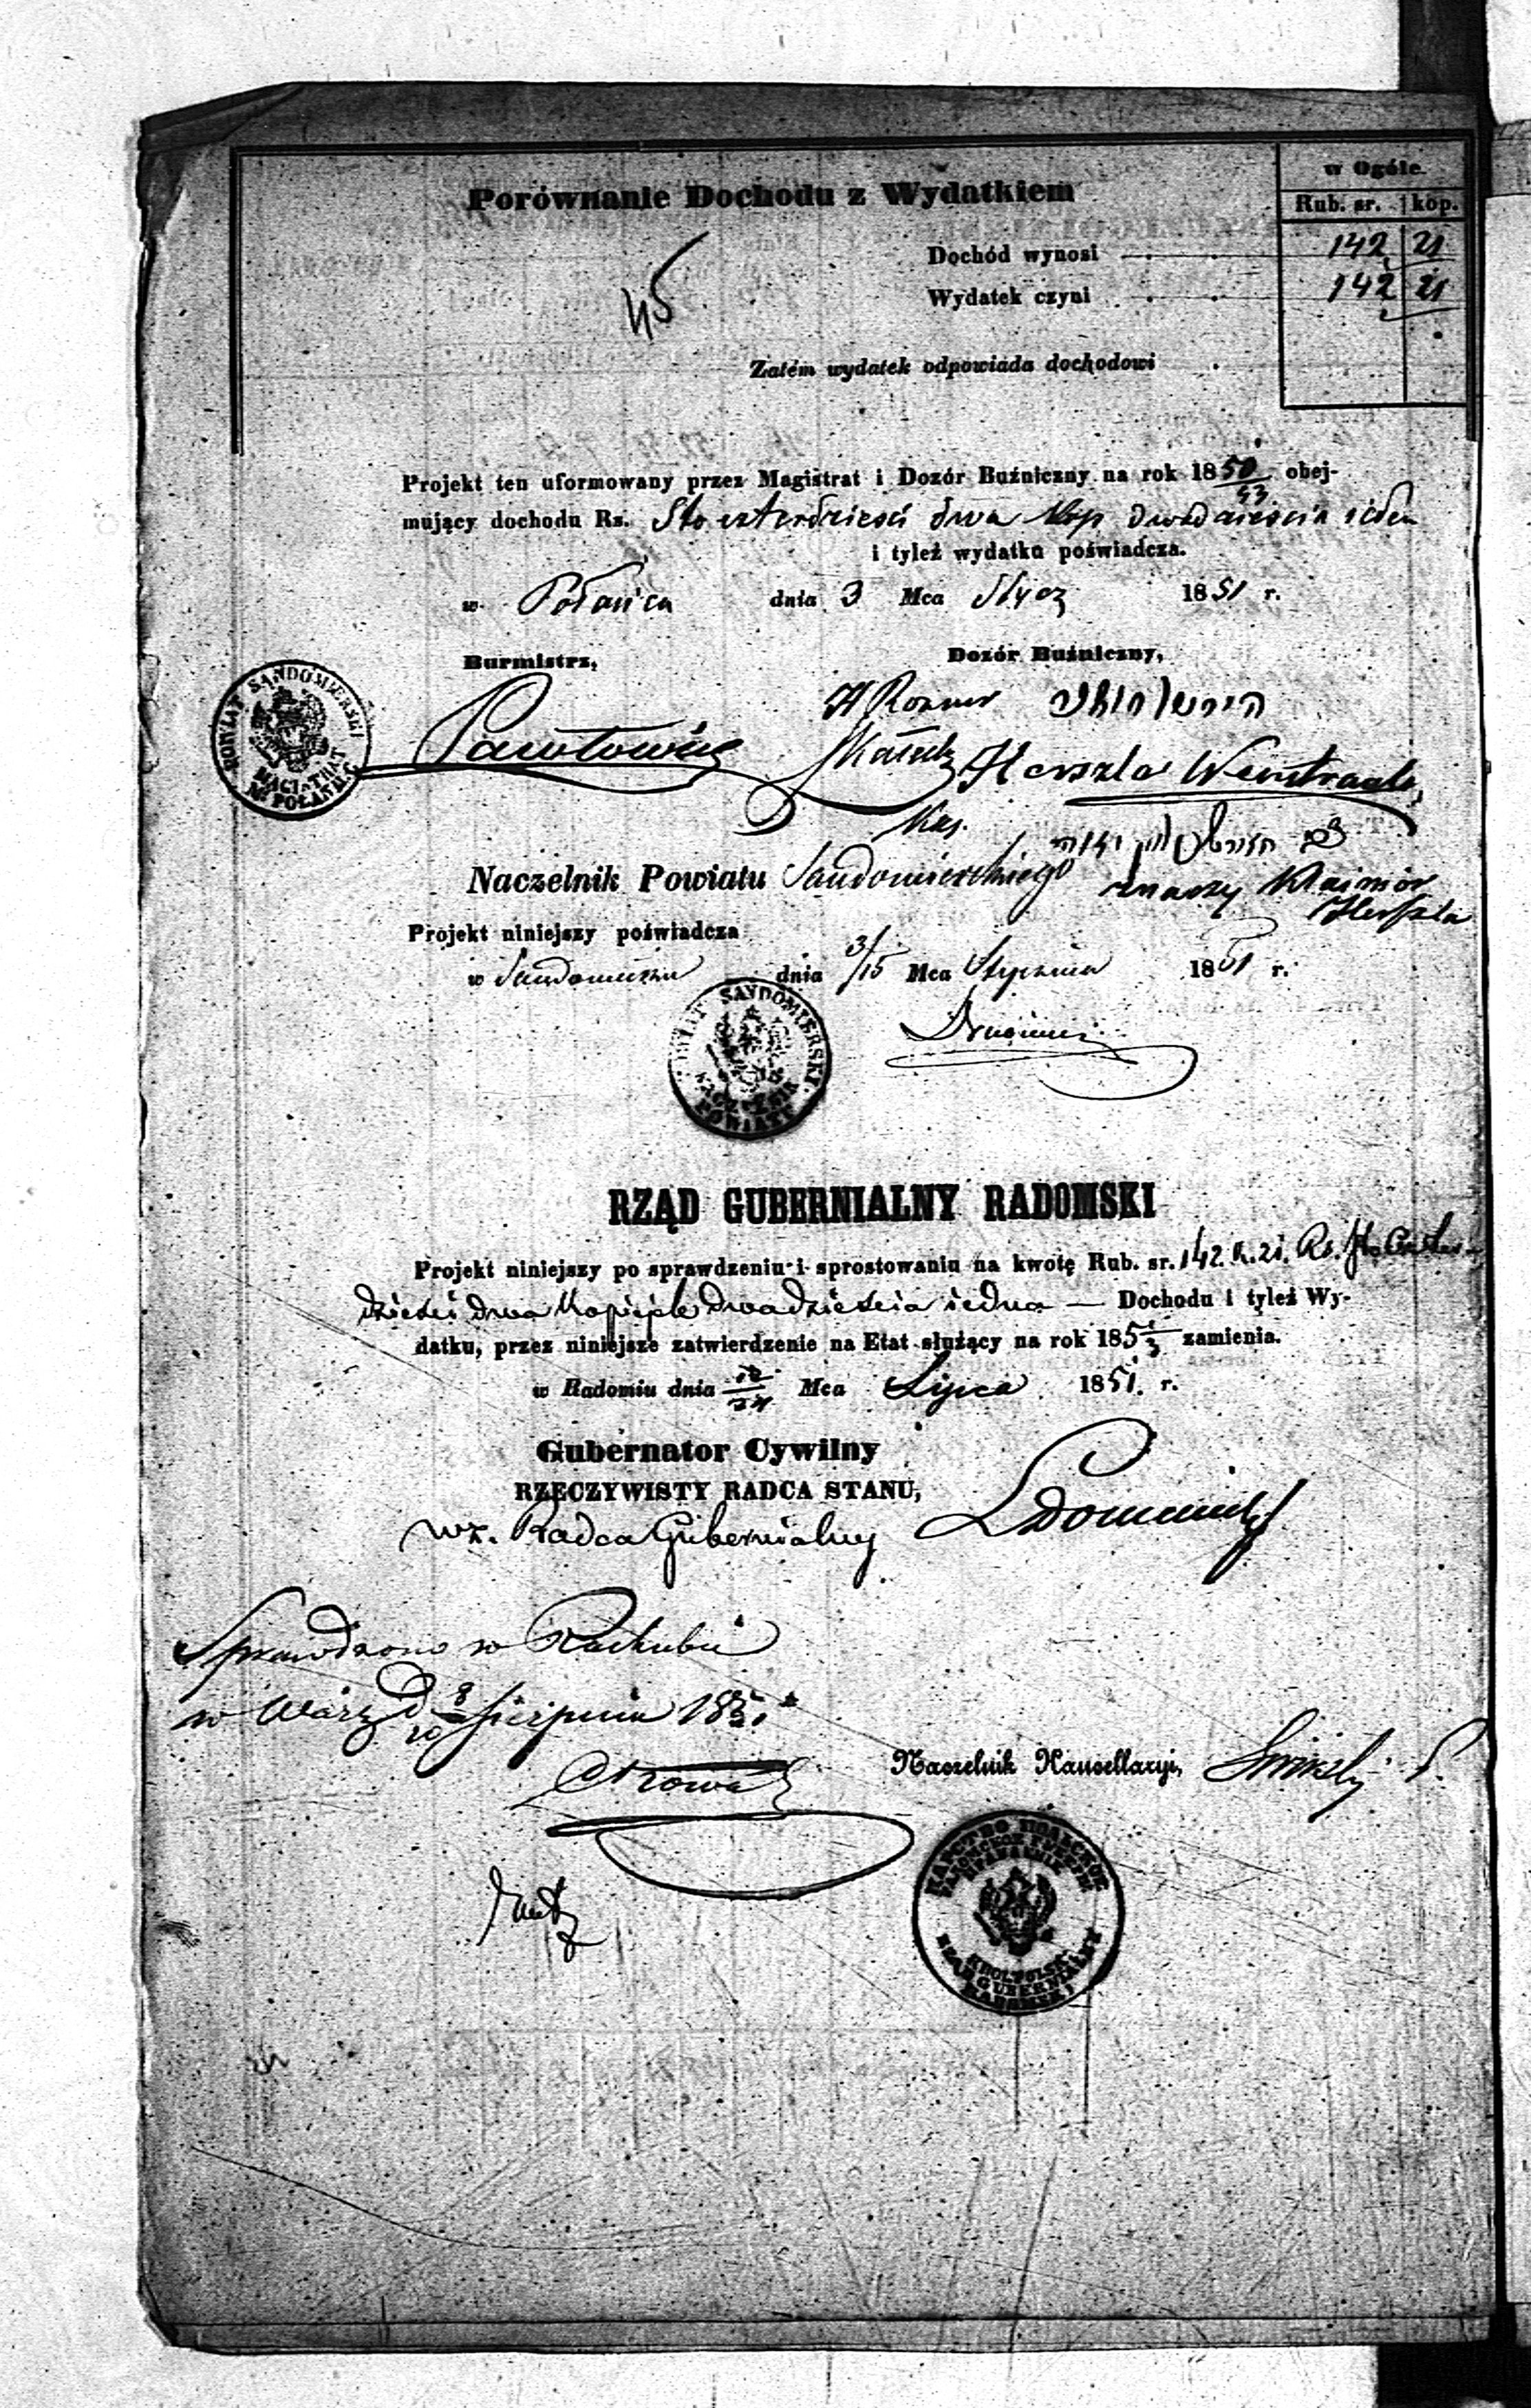 w Ogóle.
Porównanie Dochodu z Wydatkiem
Rub. sr. kop.
Dochód wynosi 142 21
45
Wydatek czyni 142 21
Zatém wydatek odpowiada dochodowi
Projekt ten uformowany przez Magistrat i Dozór Buźniczny na rok 1851/53 obej-
mujący dochodu Rs. Sto czterdzieści dwa kop dwadzieścia jeden
i tyleż wydatku poświadcza.
w Połańcu dnia 3 Mca Stycz 1851 r.
Burmistrz, Dozór Buźniczny,
POWIAT SANDOMIERSKI
MAGISTRAT
M. POŁANIEC
Pawłowicz
Herszla
Naczelnik Powiatu Sandomierskiego znaczy
Herszla
Projekt niniejszy poświadcza
w Sandomierzu dnia 3/15 Mca Stycznia 1851 r.
POWIAT SANDOMIERSKI
NACZELNIK
POWIATU
RZĄD GUBERNIALNY RADOMSKI
Projekt niniejszy po sprawdzeniu i sprostowaniu na kwotę Rub. sr. 142 k. 21. Rs. Sto Czter-
dzieści dwa kopiejek dwadzieścia jedna — Dochodu i tyleż Wy-
datku, przez niniejsze zatwierdzenie na Etat służący na rok 1851/3 zamienia.
w Radomiu dnia 12/24 Mca Lipca 1851. r.
Gubernator Cywilny
RZECZYWISTY RADCA STANU,
wz. Radca Gubernialny
Sprawdzono w Rachubie
w Warz D 8/20 Sierpnia 1851
Naczelnik Kancellaryi,
KROL. POLSK.
RZĄD GUBERNIALNY
RADOMSKI